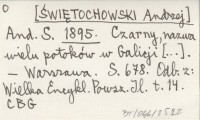 O
[ŚWIĘTOCHOWSKI Andrzej]
And. S. 1895. Czarny, nazwa
wielu potoków w Galicji [...].
— Warszawa. S. 678. Odb. z:
Wielka Encykl. Powsz. Il. t. 14.
CBG